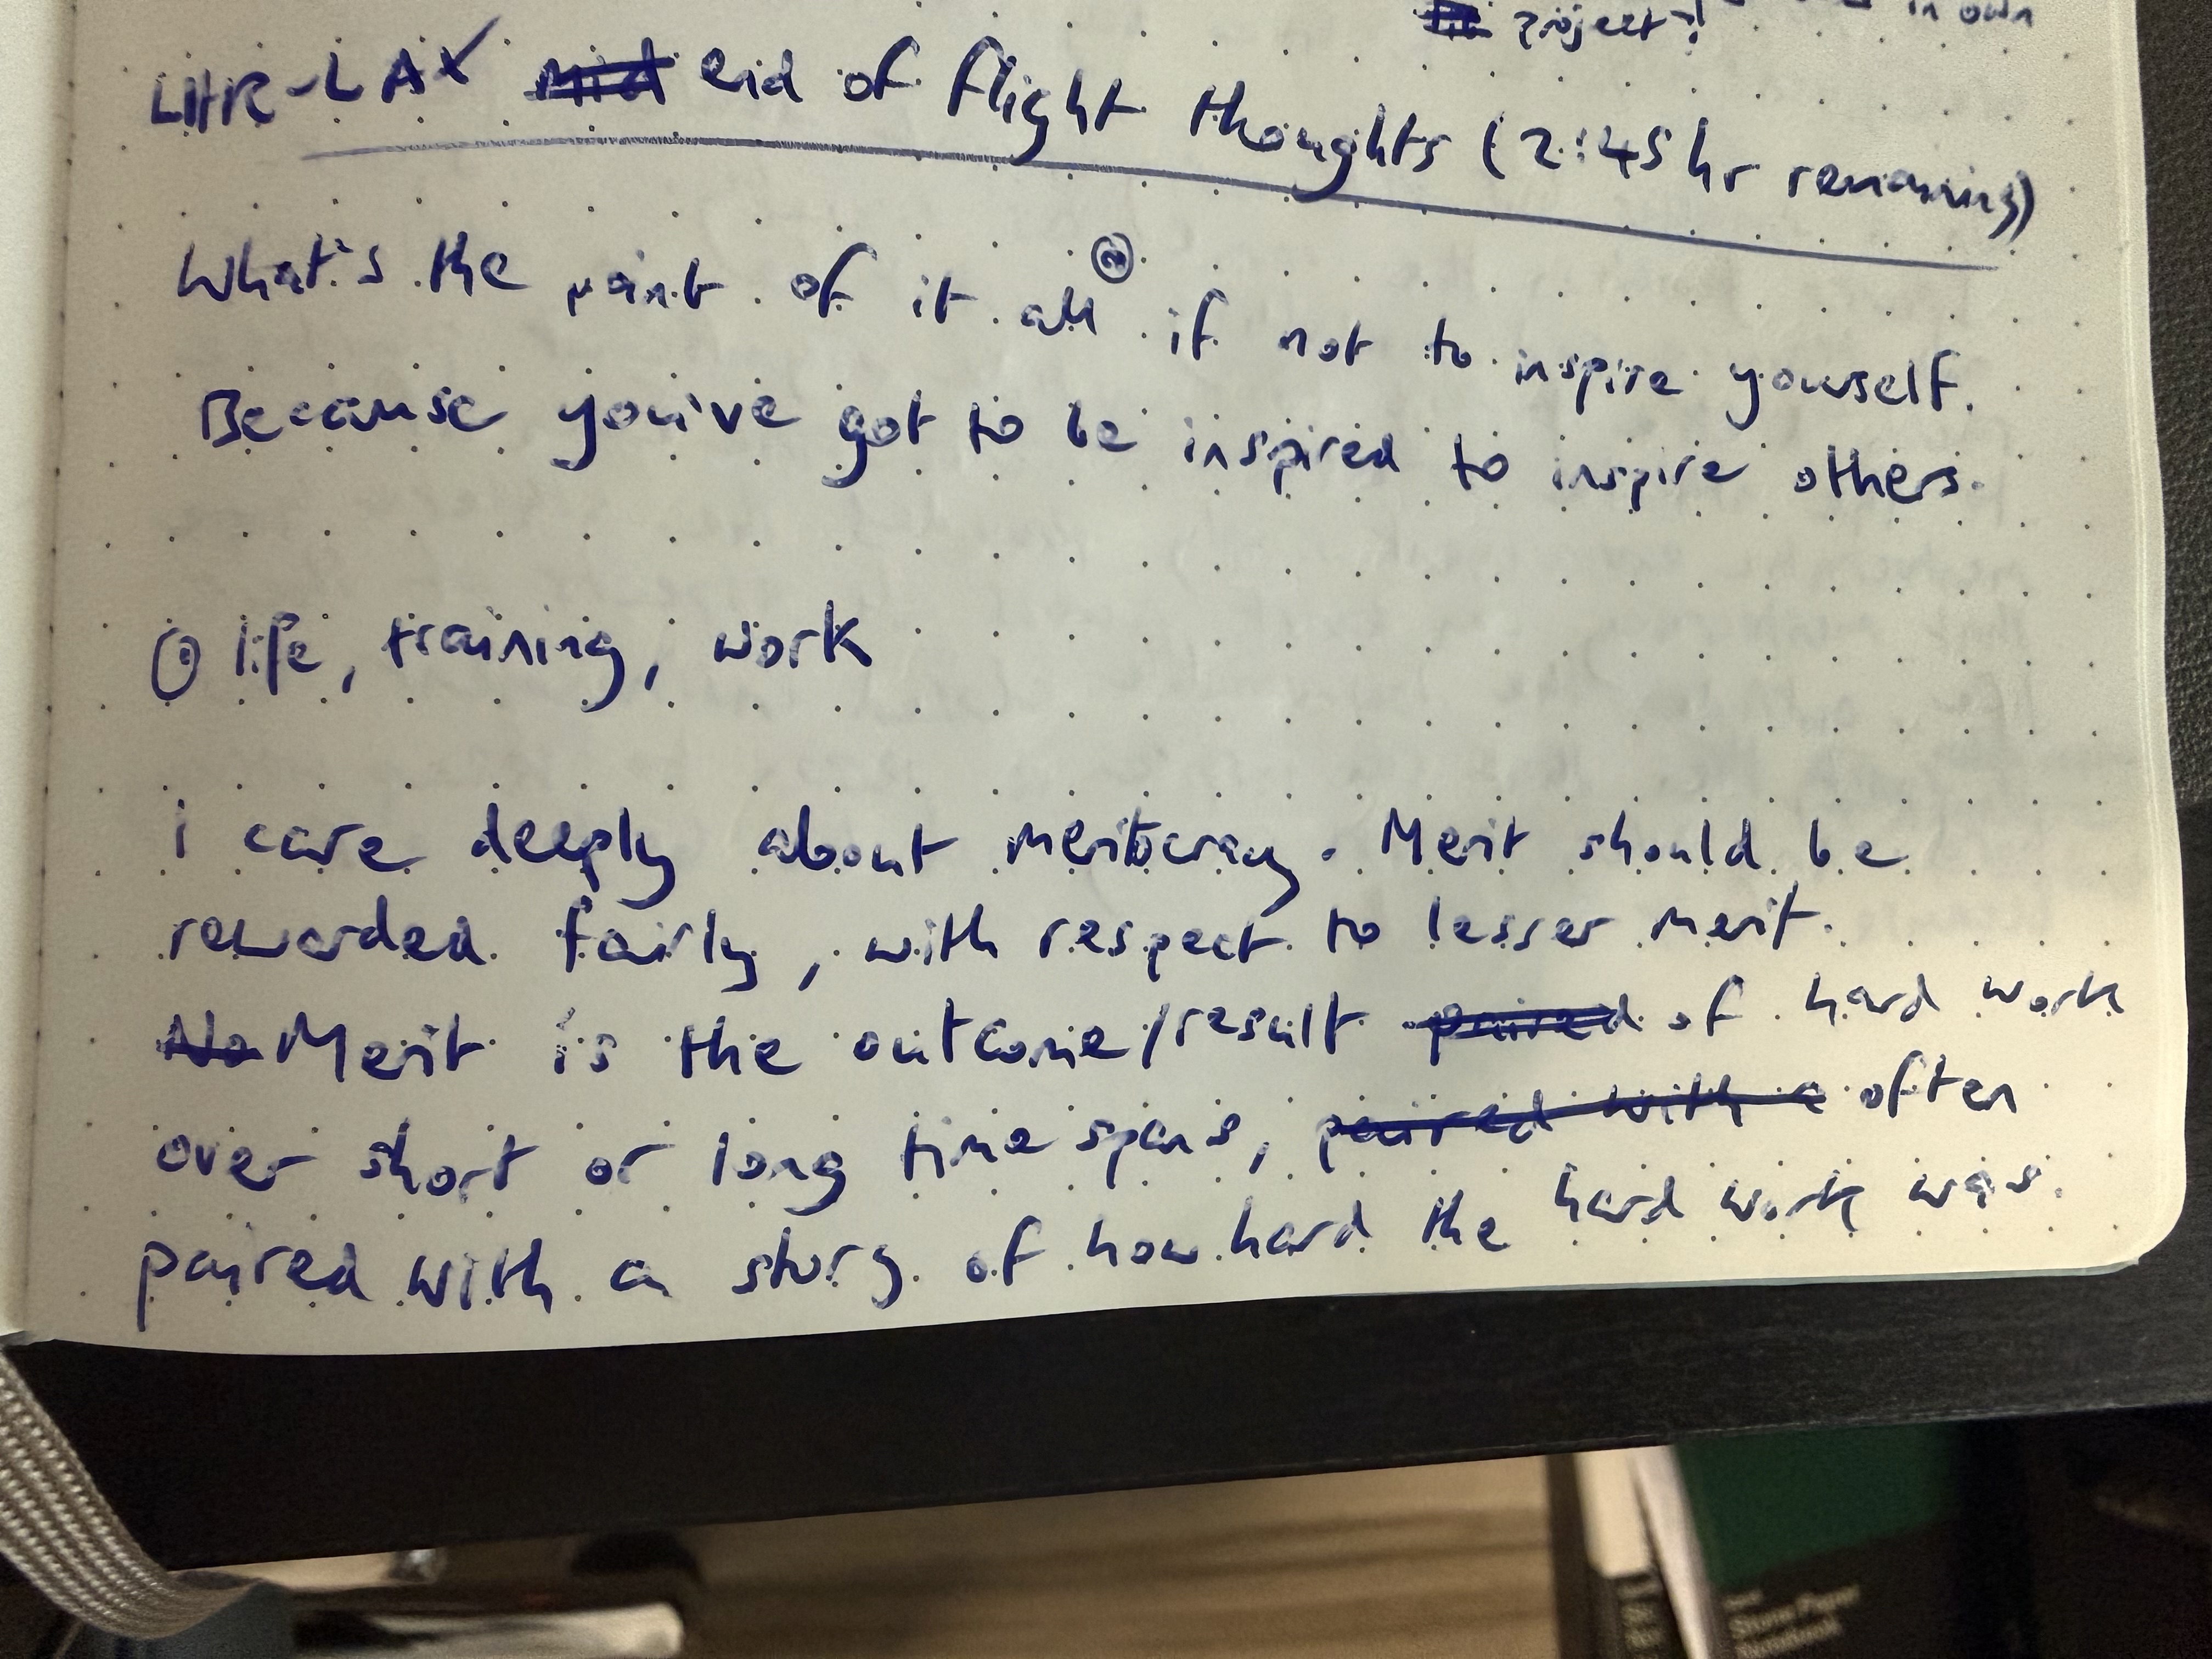 in own
project?
LHR-LAX Mid end of flight thoughts (2:45hr remaining)
What's the point of it all if not to inspire yourself.
Because you've got to be inspired to inspire others.
life, training, work
i care deeply about meritocracy. Merit should be
rewarded fairly, with respect to lesser merit.
No Merit is the outcome/result paired of hard work
over short or long time spans, paired with a often
paired with a story of how hard the hard work was.
Stone Paper
Notebook